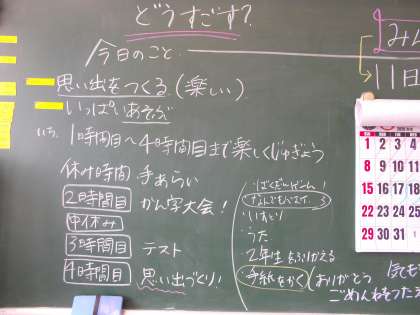 どうすごす?
今日のこと
思い出をつくる(楽しい)
いっぱいあそぶ
1時間目~4時間目まで楽しくじゅぎょう
休み時間 手あらい
2時間目 かん字大会!
中休み
3時間目 テスト
4時間目 思い出づくり!
ばくだんゲーム
なんでもバスケ
いすとり
うた
2年生をふりかえる
手紙をかく(ありがとう
ごめんねをつたえ
11日
1 2 3 4
8 9 10 11
15 16 17 18
22 23 24 25
29 30 31